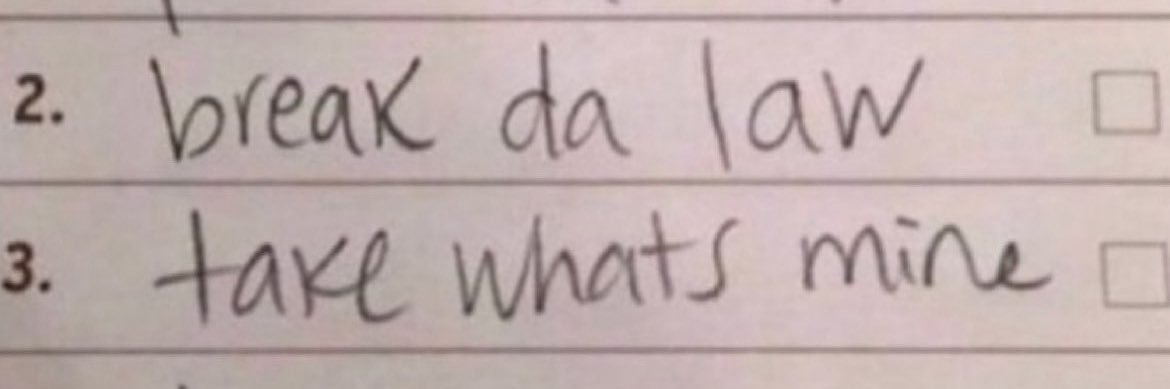 2. break da law
3. take whats mine